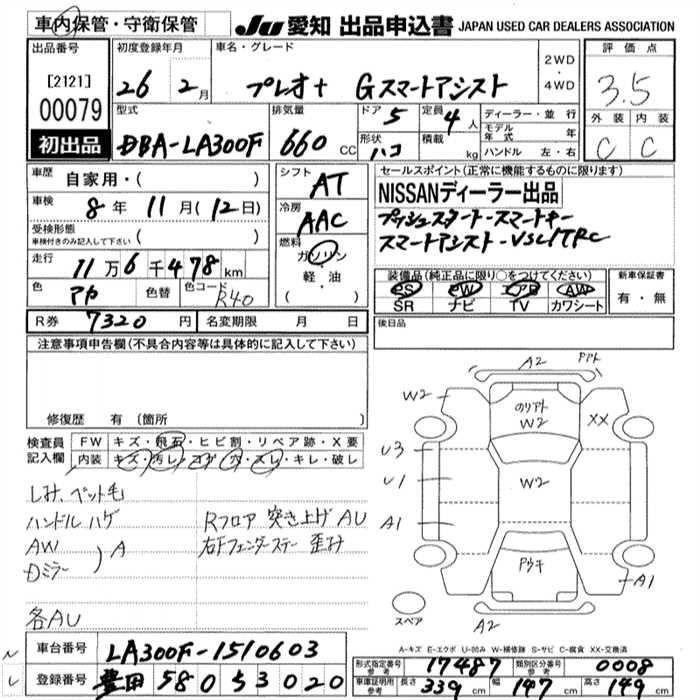 車内保管・守衛保管 JU 愛知 出品申込書 JAPAN USED CAR DEALERS ASSOCIATION
出品番号 初度登録年月 車名・グレード 評価点
[2121] 00079 26 2月 プレオ+ Gスマートアシスト 2WD・4WD 3.5
型式 排気量 ドア 5 定員 4人 ディーラー・並行 外装 内装
初出品 DBA-LA300F 660 CC 形状 ハコ 積載 kg モデル年式 年 C C
ハンドル 左・右
車歴 自家用・( ) シフト AT セールスポイント(正常に機能するものに限ります)
車検 8年 11月(12日) 冷房 AAC NISSANディーラー出品
受検形態 車検付きのみ記入して下さい ( ) プッシュスタート・スマートキー
走行 11万6千478km 燃料 ガソリン スマートアシスト・VSC/TRC
軽・油
( )
色 アカ 色替 色コード R40 装備品(純正品に限り○をつけてください) 新車保証書
PS PW エアB AW 有・無
SR ナビ TV カワシート
R券 7320円 名変期限 月 日 後日品
注意事項申告欄(不具合内容等は具体的に記入して下さい)
修復歴 有(箇所
検査員記入欄 FW キズ・飛石・ヒビ割・リペア跡・X要
内装 キズ・汚レ・コゲ・穴・スレ・キレ・破レ
シミ、ペット毛
ハンドルハゲ Rフロア 突き上げ AU
AW 右Fフェンダーステー 歪み
Dミラー ) A
各AU
A2
W2 XX
W2
U3
U1 W2
A1
A1
スペア A2
A-キズ E-エクボ U-凹み W-補修跡 S-サビ C-腐食 XX-交換済
車台番号 LA300F-1510603 形式指定番号 参考 17487 類別区分番号 参考 0008
登録番号 豊田 580 53020 車庫証明用 参考 長さ 339cm 幅 147cm 高さ 149cm